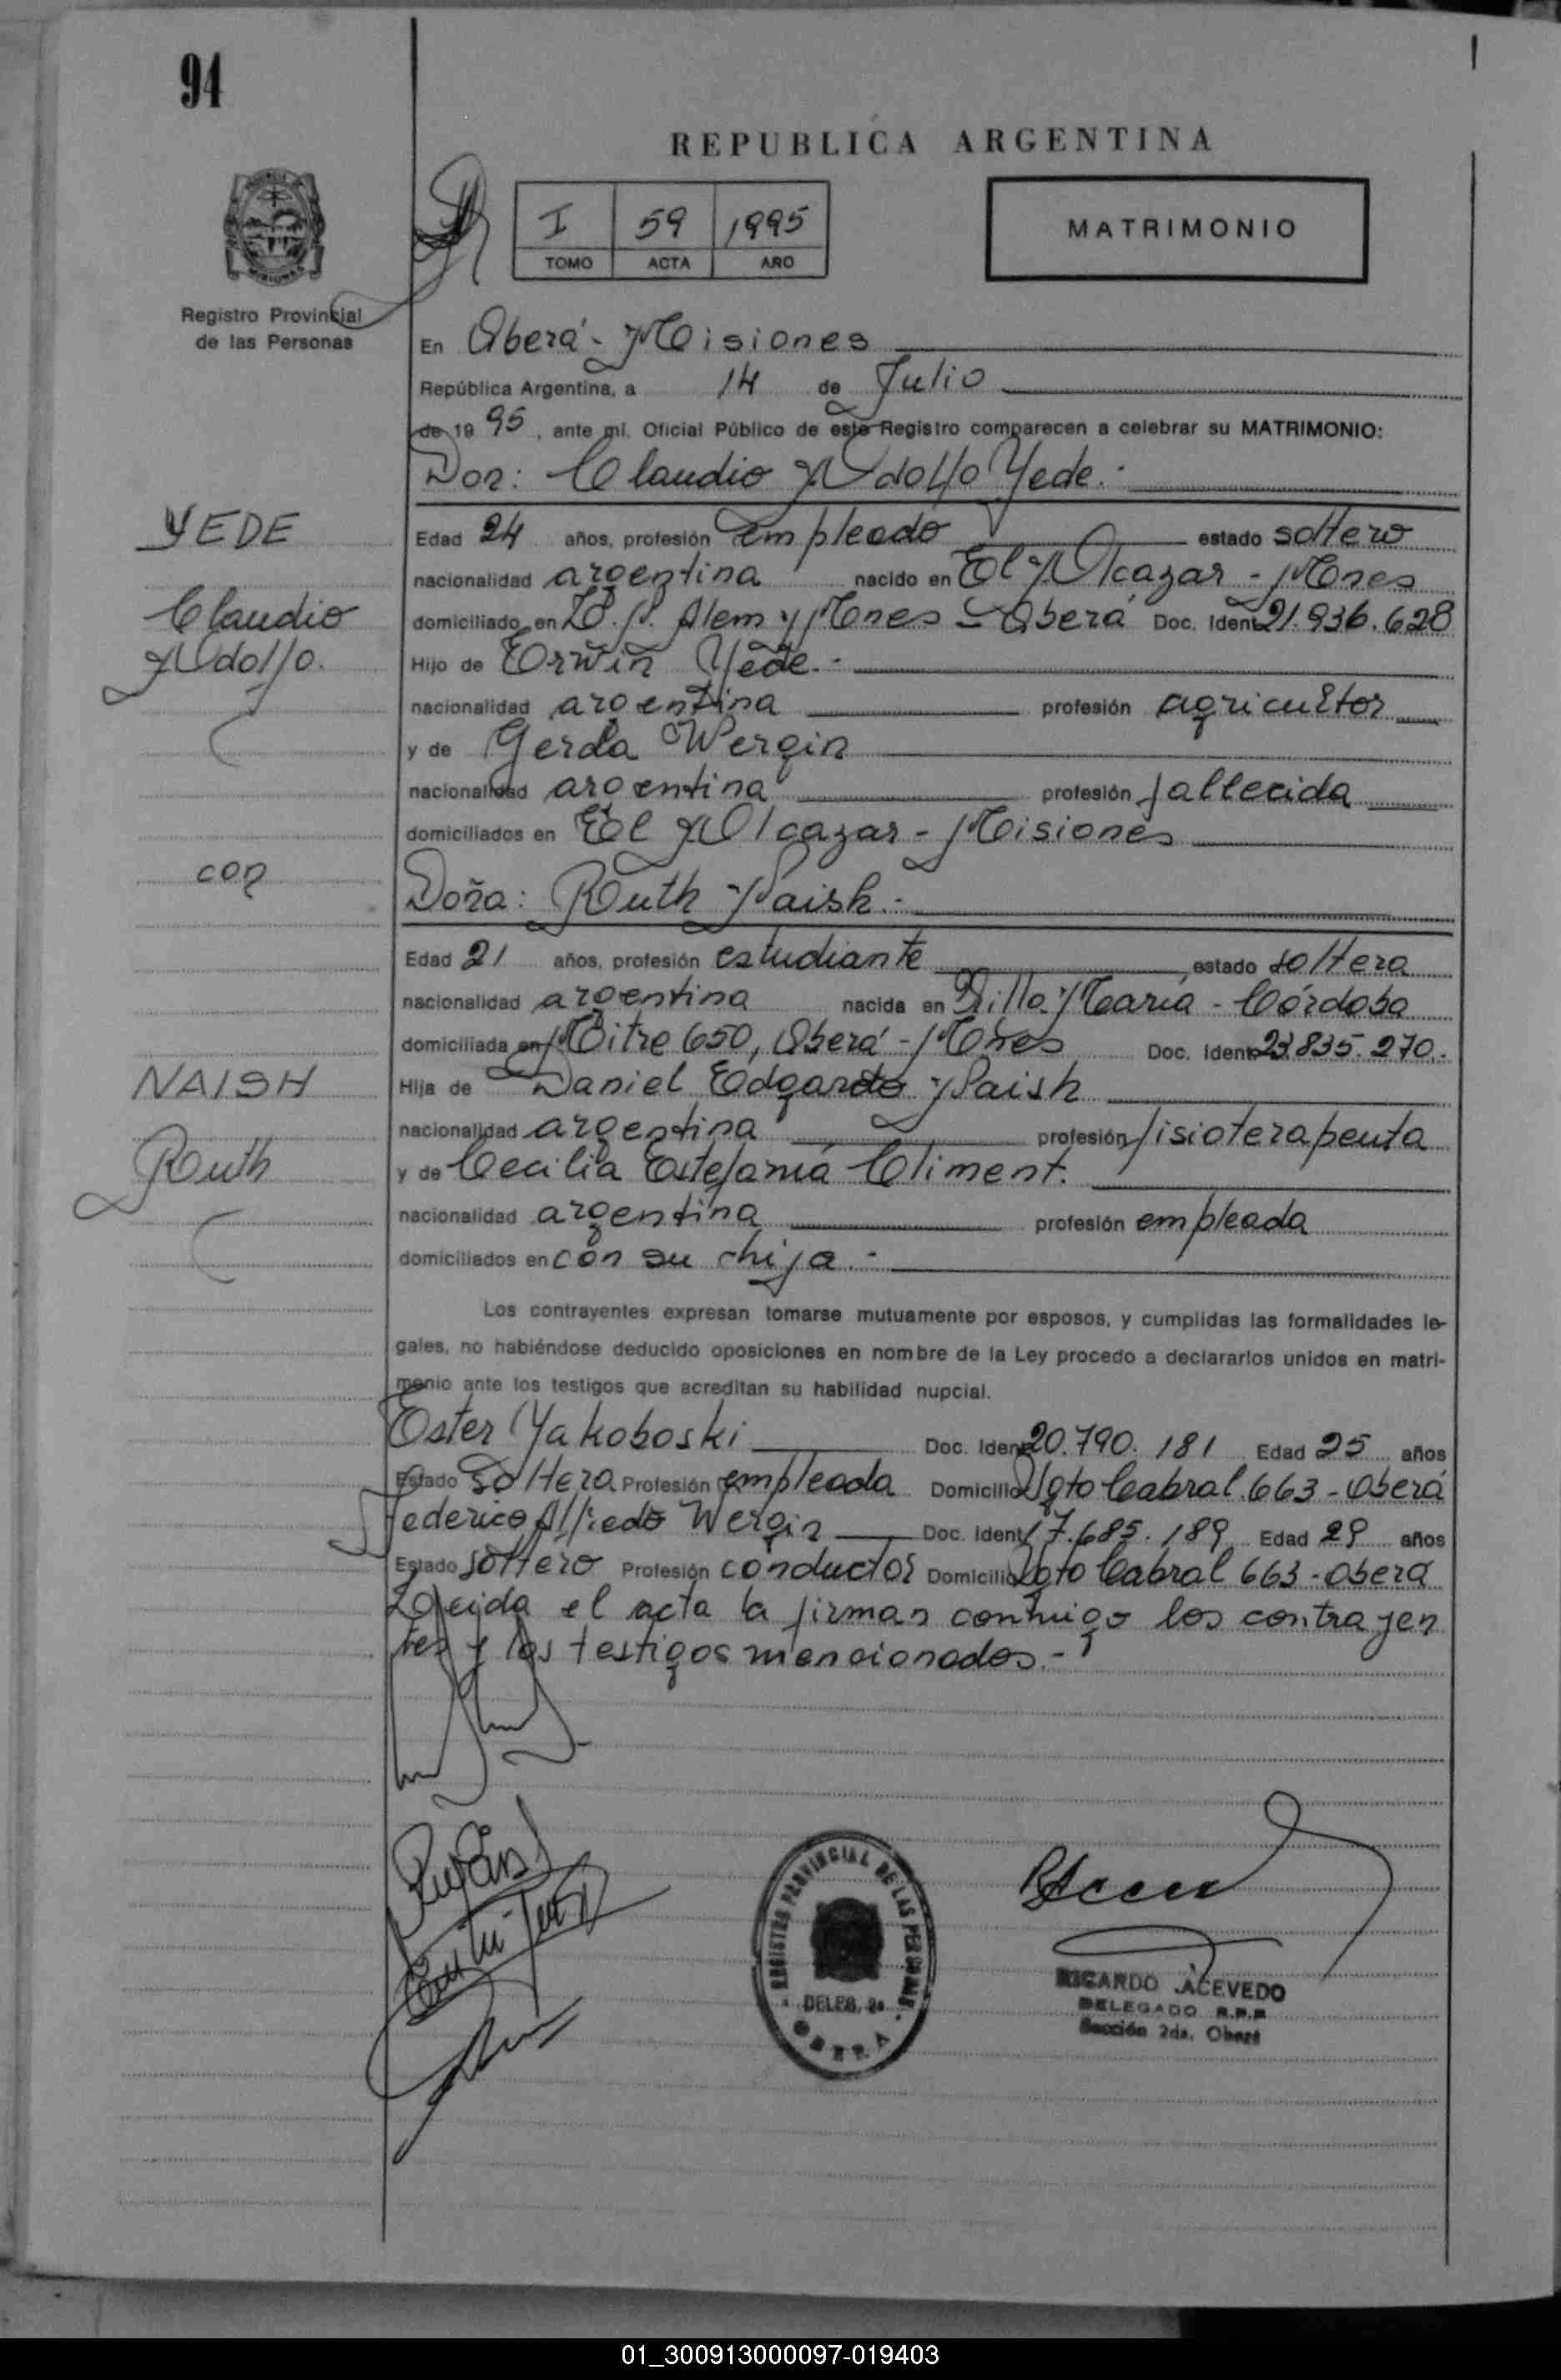 94
REPUBLICA ARGENTINA
I 59 1995
TOMO ACTA AÑO
MATRIMONIO
Registro Provincial
de las Personas
En Oberá - Misiones
República Argentina, a 14 de Julio
de 19 95, ante mí, Oficial Público de este Registro comparecen a celebrar su MATRIMONIO:
Don: Claudio Adolfo Yede.-
YEDE
Edad 24 años, profesión empleado estado soltero
nacionalidad argentina nacido en El Alcazar - Mnes
Claudio
domiciliado en L. N. Alem y Mnes - Oberá Doc. Ident 21.936.628
Adolfo.
Hijo de Erwin Yede.-
nacionalidad argentina profesión agricultor
y de Gerda Wergin
nacionalidad argentina profesión fallecida
domiciliados en El Alcazar - Misiones
con
Doña: Ruth Naish.-
Edad 21 años, profesión estudiante estado soltera
nacionalidad argentina nacida en Villa María - Córdoba
domiciliada en Mitre 650, Oberá - Mnes Doc. Ident 23.835.270.-
NAISH
Hija de Daniel Edgardo Naish
nacionalidad argentina profesión fisioterapeuta
Ruth
y de Cecilia Estefanía Climent.
nacionalidad argentina profesión empleada
domiciliados en con su hija.-
Los contrayentes expresan tomarse mutuamente por esposos, y cumplidas las formalidades le-
gales, no habiéndose deducido oposiciones en nombre de la Ley procedo a declararlos unidos en matri-
monio ante los testigos que acreditan su habilidad nupcial.
Ester Yakoboski Doc. Ident 20.790.181 Edad 25 años
Estado soltera Profesión empleada Domicilio Sgto Cabral 663 - Oberá
Federico Alfredo Wergin Doc. Ident 17.685.189 Edad 29 años
Estado soltero Profesión conductor Domicilio Sgto Cabral 663 - Oberá
Leida el acta la firman conmigo los contrayen
tes y los testigos mencionados.-
REGISTRO PROVINCIAL DE LAS PERSONAS
DELEG. 2a
OBERA
RICARDO ACEVEDO
DELEGADO R.P.P
Sección 2da. Oberá
01_300913000097-019403